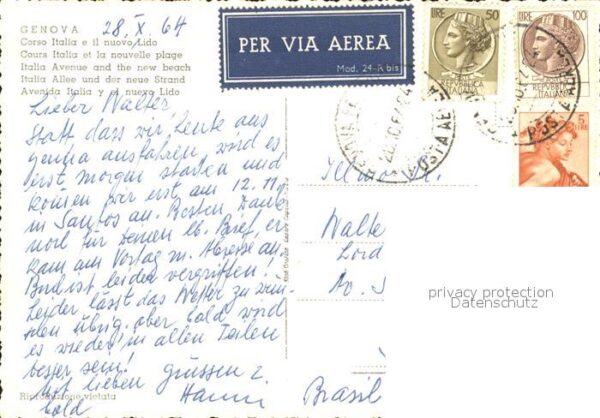 GENOVA 28.X.64
Corso Italia e il nuovo Lido
Cours Italia et la nouvelle plage
Italia Avenue and the new beach
Italia Allee und der neue Strand
Avenida Italia y el nuevo Lido
PER VIA AEREA
Mod. 24-R bis
LIRE 50
REPUBBLICA ITALIANA
LIRE 100
REPUBBLICA ITALIANA
5 LIRE
POSTA AEREA
POS
Lieber Walter
Statt dass wir heute aus
genua ausfahren wird es
erst morgen werden und
kommen wir erst am 12.11.
in Santos an. Besten Dank
noch für Deinen lb. Brief, er
kam am Vortag m. Abreise an.
Bird ist leider vergriffen!
Leider lässt das Wetter zu wün-
schen übrig, aber bald wird
es wieder in allen Teilen
besser sein!
Mit lieben grüssen z.
bald Hanni
Walte
Lord
Av. S
Brasil
privacy protection
Datenschutz
Riproduzione vietata